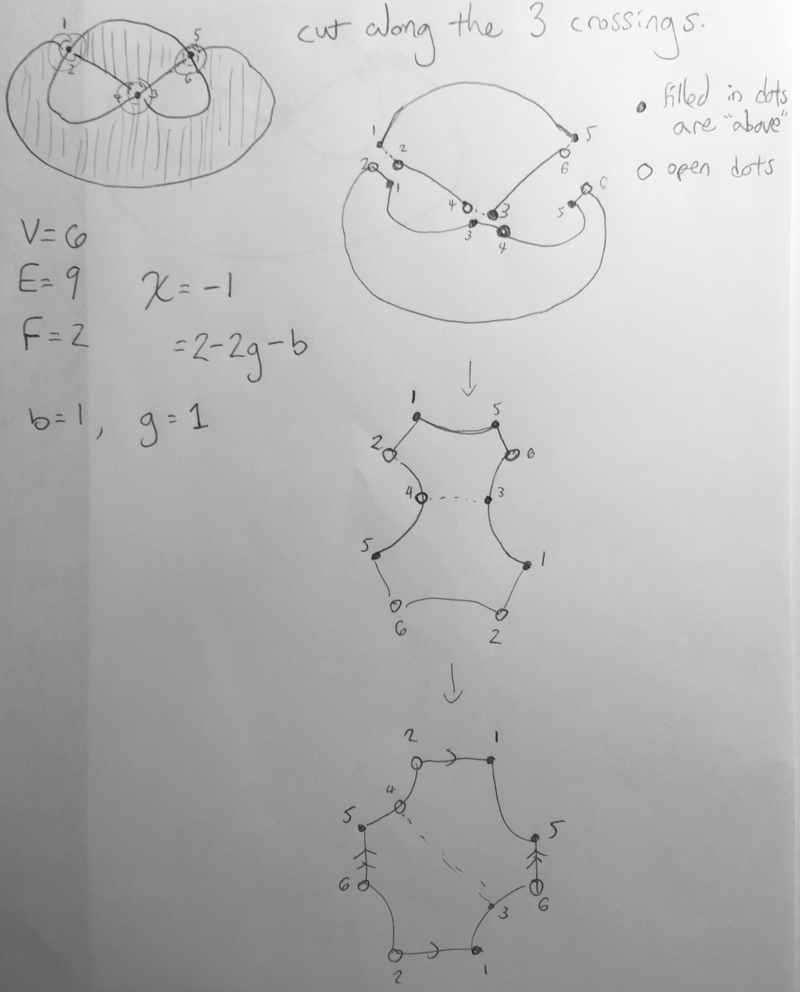 cut along the 3 crossings:
1
5
2
4
3
6
filled in dots
are "above"
open dots
1
5
2
6
2
1
4
3
6
5
3
4
V=6
E=9
χ=-1
F=2
=2-2g-b
b=1, g=1
1
5
2
6
4
3
5
1
6
2
2
1
4
5
5
6
6
3
2
1